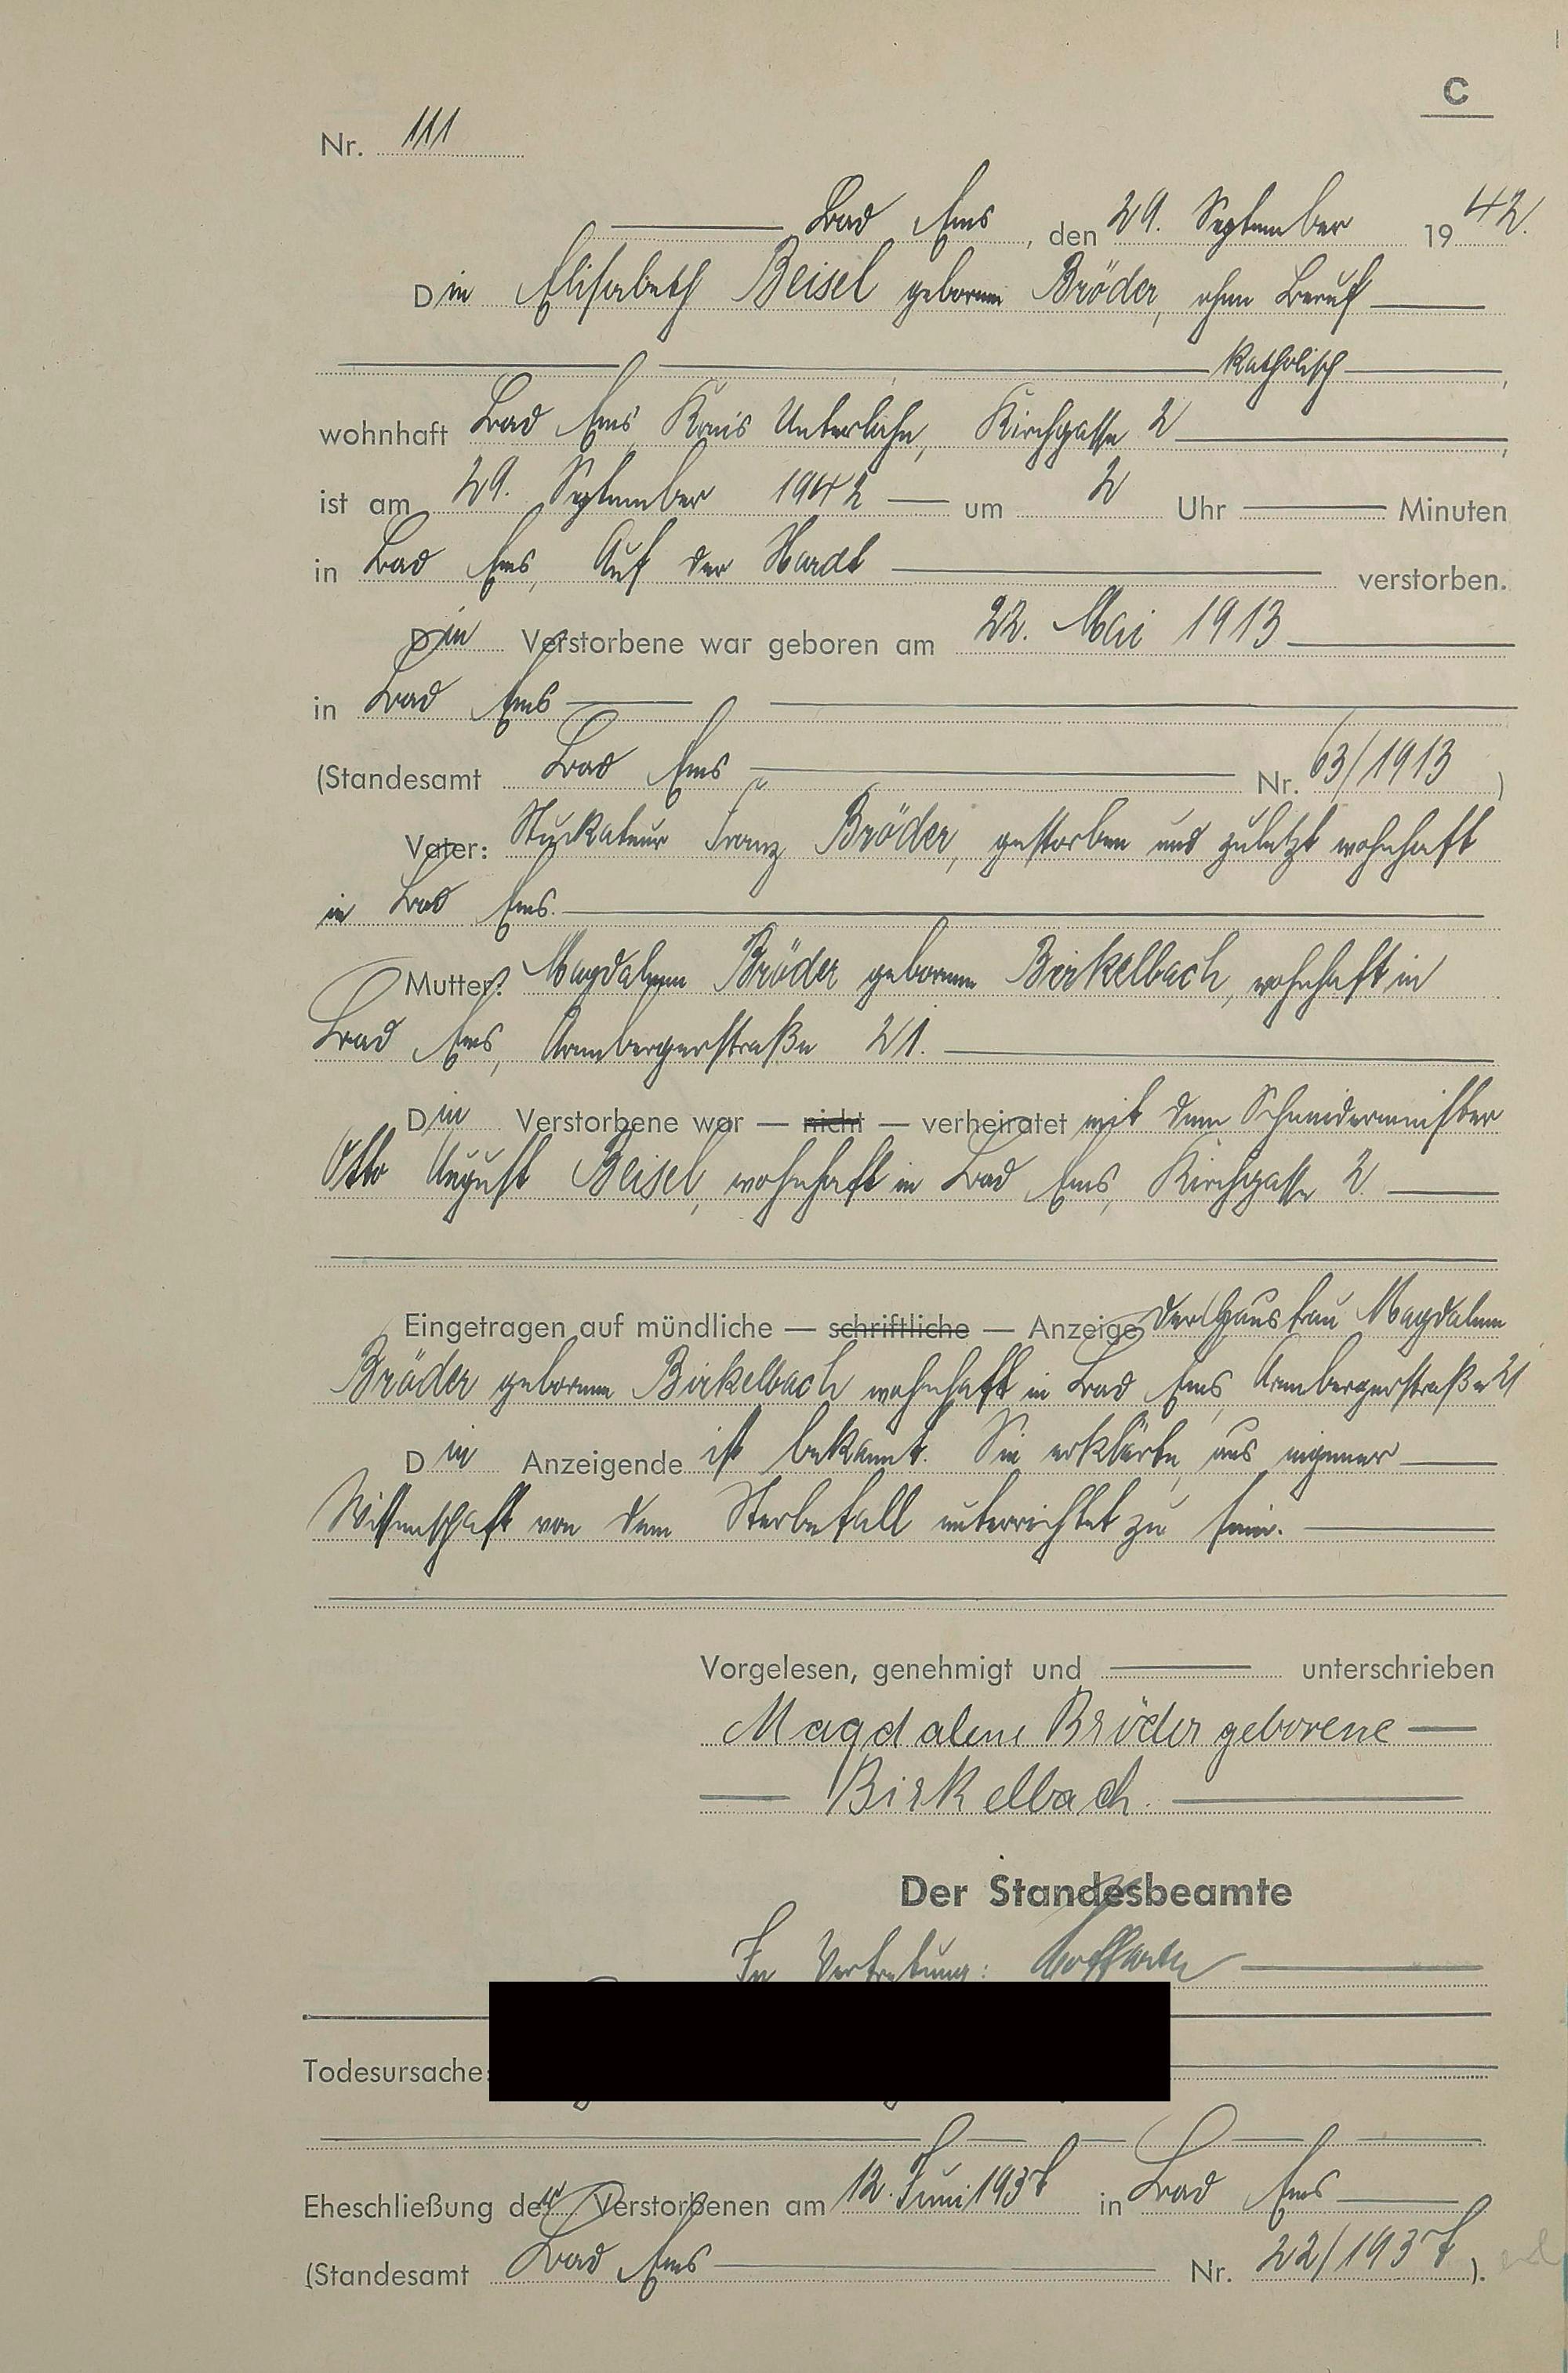 C
Nr. 111
Bad Ems, den 29. September 1942.
Die Elisabeth Beisel geborene Bröder, ohne Beruf
katholisch,
wohnhaft Bad Ems Kreis Unterlahn, Kirchgasse 2,
ist am 29. September 1942 um 2 Uhr Minuten
in Bad Ems, Auf der Hardt verstorben.
Die Verstorbene war geboren am 22. Mai 1913
in Bad Ems
(Standesamt Bad Ems Nr. 63/1913)
Vater: Stuckateur Franz Bröder, gestorben und zuletzt wohnhaft
in Bad Ems.
Mutter: Magdalena Bröder geborene Birkelbach, wohnhaft in
Bad Ems, Arenbergerstraße 21.
Die Verstorbene war — nicht — verheiratet mit dem Schneidermeister
Otto August Beisel, wohnhaft in Bad Ems, Kirchgasse 2.
Eingetragen auf mündliche — schriftliche — Anzeige der Hausfrau Magdalena
Bröder geborene Birkelbach wohnhaft in Bad Ems, Arenbergerstraße 21
Die Anzeigende ist bekannt. Sie erklärte, aus eigener
Wissenschaft von dem Sterbefall unterrichtet zu sein.
Vorgelesen, genehmigt und unterschrieben
Magdalene Bröder geborene
Birkelbach.
Der Standesbeamte
In Vertretung:
Todesursache:
Eheschließung der Verstorbenen am 12. Juni 1937 in Bad Ems
(Standesamt Bad Ems Nr. 22/1937).